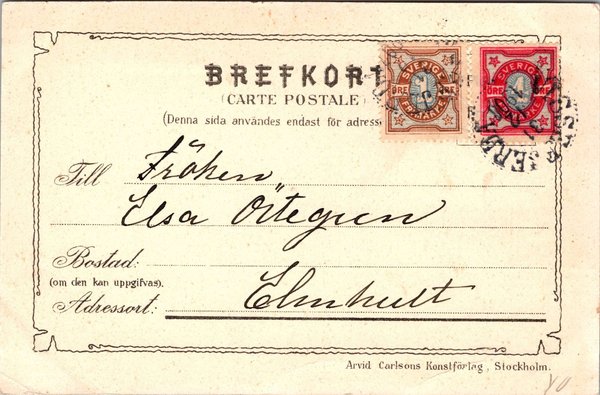 BREFKORT
(CARTE POSTALE)
(Denna sida användes endast för adresse
SVERIGE
ÖRE ÖRE
FRIMÄRKE
SVERIGE
ÖRE ÖRE
FRIMÄRKE
Till Fröken
Elsa Örtegren
Bostad:
(om den kan uppgifvas).
Adressort: Elmhult
Arvid Carlsons Konstförlag, Stockholm.